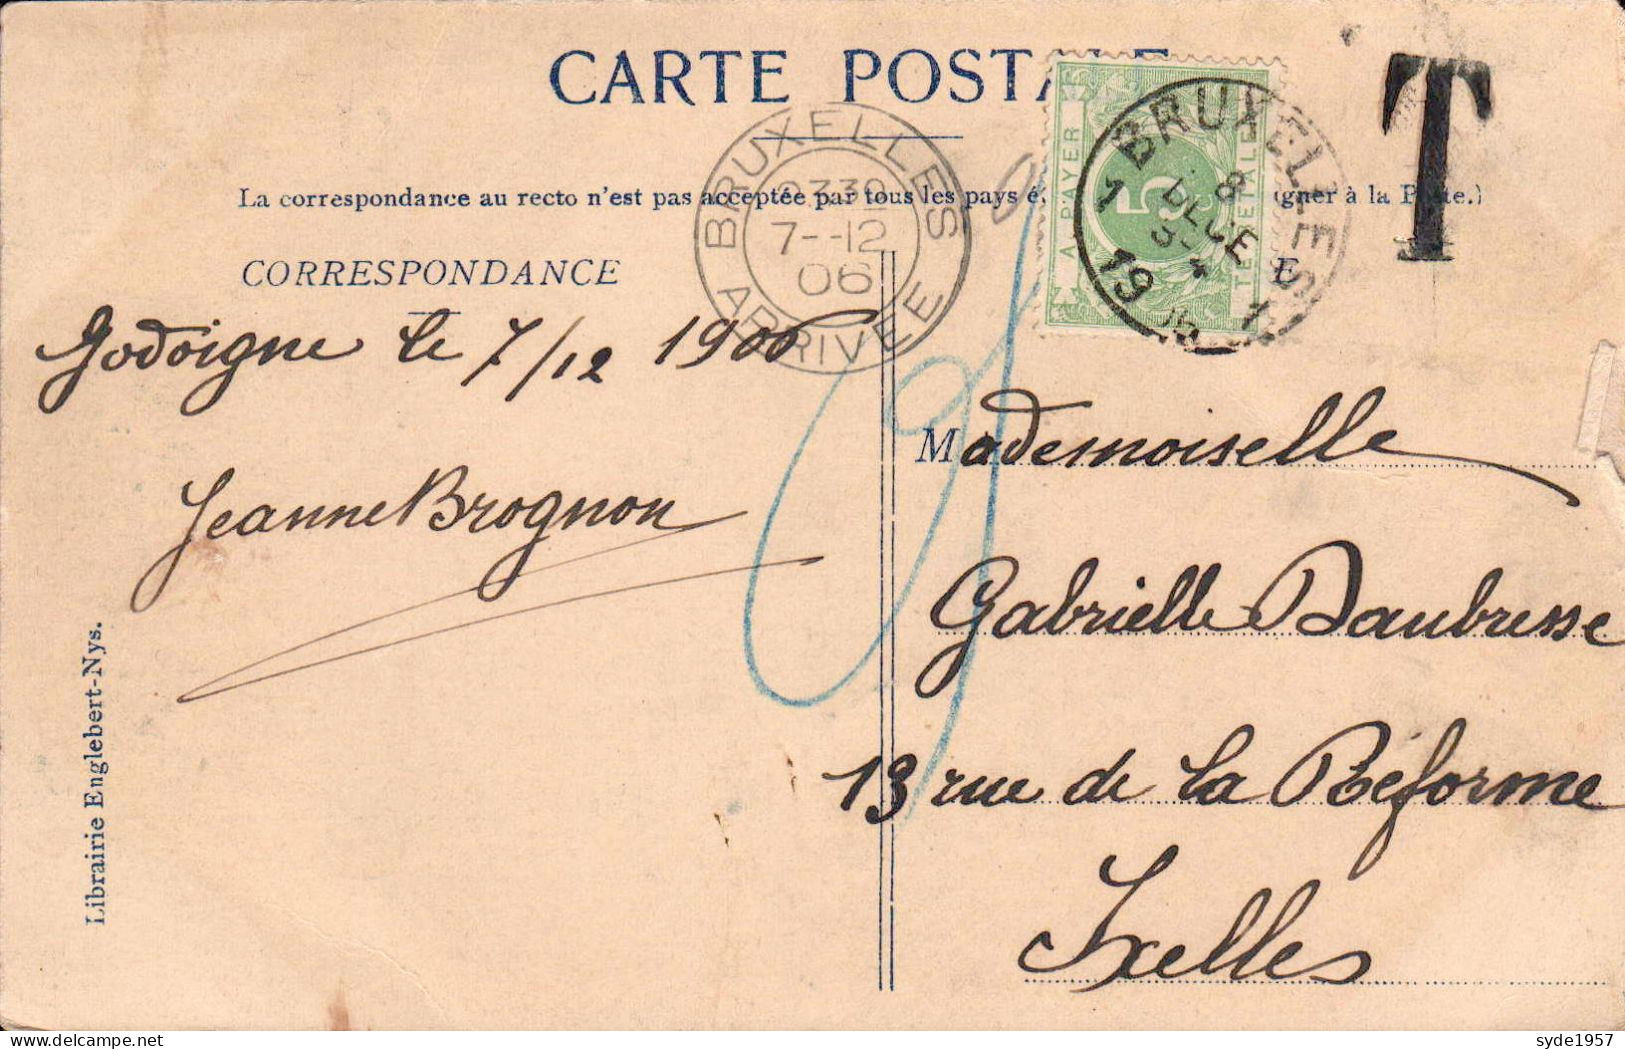 CARTE POSTALE
La correspondance au recto n'est pas acceptée par tous les pays
igner à la Poste.)
CORRESPONDANCE
BRUXELLES
7--12
06
ARRIVÉE
A PAYER
5
TE BETALEN
BRUXELLES
1
8
DECE
19
T
Jodoigne le 7/12 1906
Jeanne Brognon
Mademoiselle
Gabrielle Daubresse
13 rue de la Réforme
Ixelles
Librairie Englebert-Nys.
syde1957